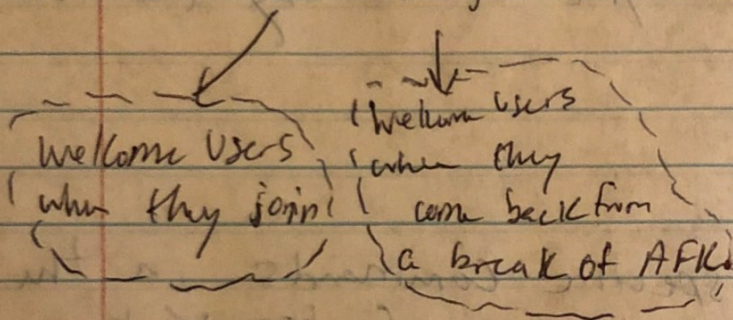 Welcome Users
when they join
Welcome users
when they
come back from
a break of AFK.